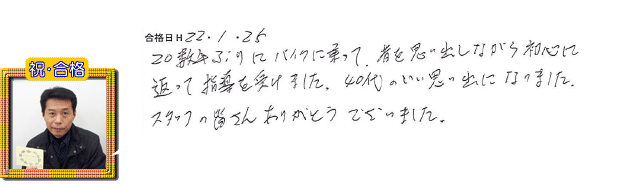 合格日H22.1.25
20数年ぶりにバイクに乗って、昔を思い出しながら初心に
返って指導を受けました。40代のいい思い出になりました。
スタッフの皆さんありがとうございました。
祝・合格